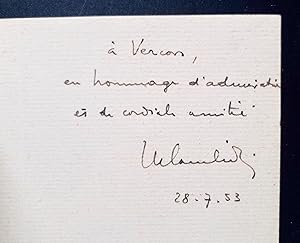 à Vercors,
en hommage d'admiration
et de cordiale amitié
28.7.53